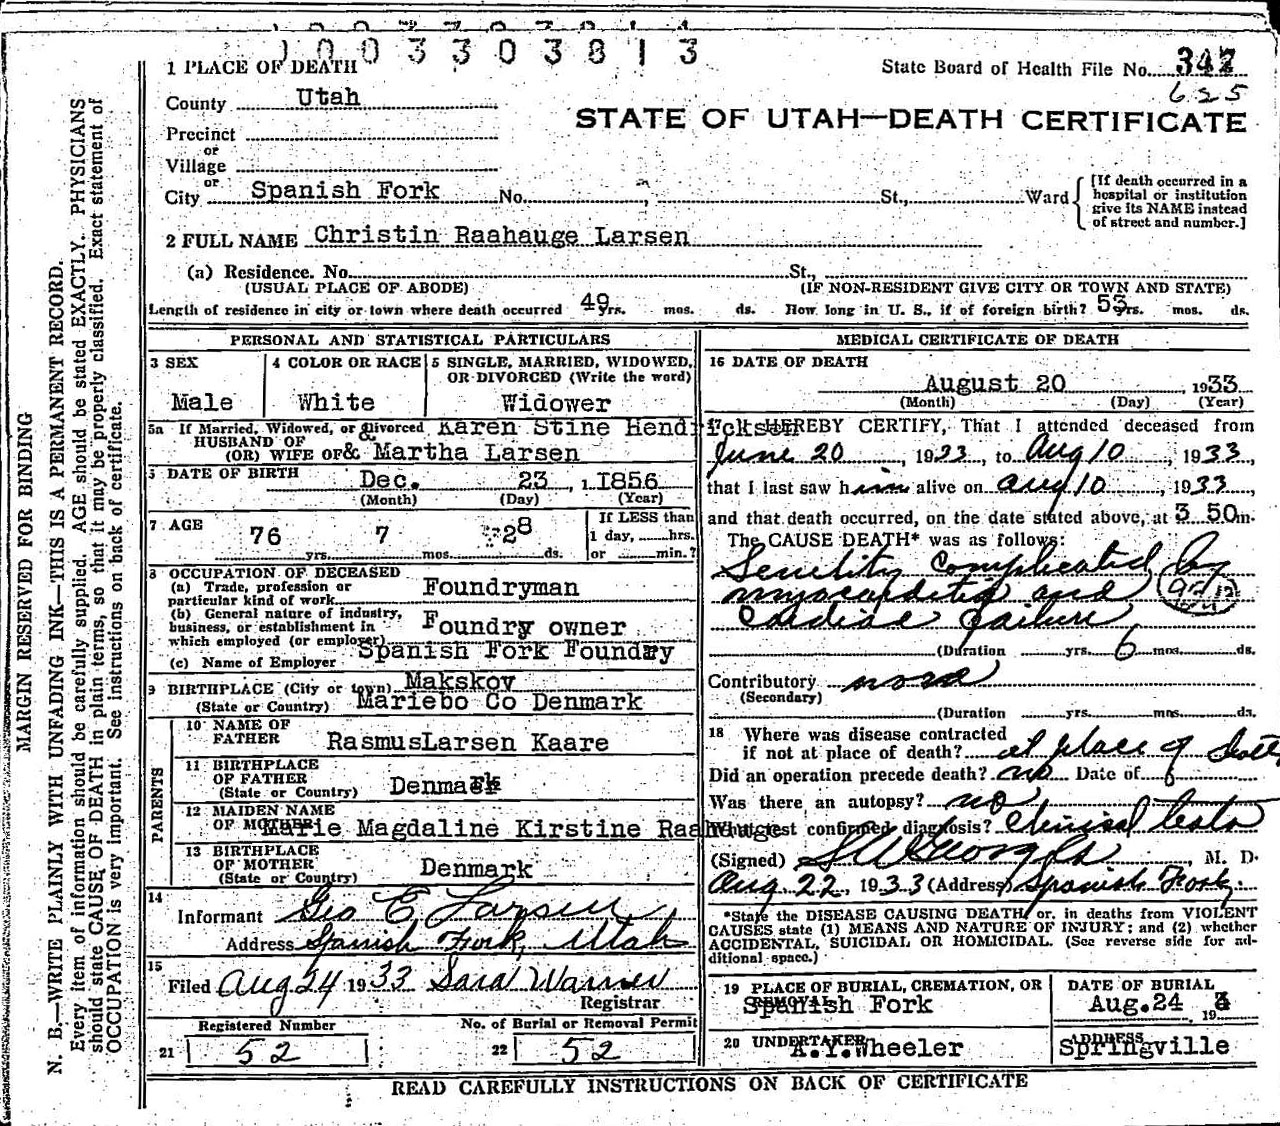 1003303813
1 PLACE OF DEATH
State Board of Health File No. 347
625
County Utah
STATE OF UTAH—DEATH CERTIFICATE
Precinct
or
Village
or
City Spanish Fork No. St., Ward
[If death occurred in a
hospital or institution
give its NAME instead
of street and number.]
2 FULL NAME Christin Raahauge Larsen
(a) Residence. No. St.,
(USUAL PLACE OF ABODE) (IF NON-RESIDENT GIVE CITY OR TOWN AND STATE)
Length of residence in city or town where death occurred 49 yrs. mos. ds. How long in U. S., if of foreign birth? 53 yrs. mos. ds.
PERSONAL AND STATISTICAL PARTICULARS
3 SEX
Male
4 COLOR OR RACE
White
5 SINGLE, MARRIED, WIDOWED,
OR DIVORCED (Write the word)
Widower
5a If Married, Widowed, or Divorced Karen Stine Hendricksen
HUSBAND OF &
(OR) WIFE OF & Martha Larsen
6 DATE OF BIRTH Dec. 23, 1856
(Month) (Day) (Year)
7 AGE
76 yrs. 7 mos. 28 ds.
If LESS than
1 day, hrs.
or min.?
8 OCCUPATION OF DECEASED
(a) Trade, profession or
particular kind of work Foundryman
(b) General nature of industry,
business, or establishment in
which employed (or employer) Foundry owner
Spanish Fork Foundry
(c) Name of Employer
9 BIRTHPLACE (City or town) Makskov
(State or Country) Mariebo Co Denmark
PARENTS
10 NAME OF
FATHER RasmusLarsen Kaare
11 BIRTHPLACE
OF FATHER
(State or Country) Denmark
12 MAIDEN NAME
OF MOTHER Marie Magdaline Kirstine Raahauge
13 BIRTHPLACE
OF MOTHER
(State or Country) Denmark
14
Informant Geo E Larsen
Address Spanish Fork, Utah
15
Filed Aug 24 1933 Sara Warner
Registrar
Registered Number
21 52
No. of Burial or Removal Permit
22 52
MEDICAL CERTIFICATE OF DEATH
16 DATE OF DEATH
August 20 1933
(Month) (Day) (Year)
I HEREBY CERTIFY, That I attended deceased from
June 20, 1933, to Aug 10, 1933,
that I last saw him alive on Aug 10, 1933,
and that death occurred, on the date stated above, at 3 50 m.
The CAUSE DEATH* was as follows:
Senility Complicated by
myocarditis and
Cardiac Failure
(Duration yrs. 6 mos. ds.
Contributory
(Secondary)
(Duration yrs. mos. ds.
18 Where was disease contracted
if not at place of death? at place of death
Did an operation precede death? no Date of
Was there an autopsy? no
What test confirmed diagnosis? Clinical tests
(Signed) M. D.
Aug 22, 1933 (Address) Spanish Fork.
*State the DISEASE CAUSING DEATH, or, in deaths from VIOLENT
CAUSES state (1) MEANS AND NATURE OF INJURY; and (2) whether
ACCIDENTAL, SUICIDAL OR HOMICIDAL. (See reverse side for ad-
ditional space.)
19 PLACE OF BURIAL, CREMATION, OR
REMOVAL
Spanish Fork
DATE OF BURIAL
Aug.24 193
20 UNDERTAKER
A.Y.Wheeler
ADDRESS
Springville
READ CAREFULLY INSTRUCTIONS ON BACK OF CERTIFICATE
MARGIN RESERVED FOR BINDING
N. B.—WRITE PLAINLY WITH UNFADING INK—THIS IS A PERMANENT RECORD.
Every item of information should be carefully supplied. AGE should be stated EXACTLY. PHYSICIANS
should state CAUSE OF DEATH in plain terms, so that it may be properly classified. Exact statement of
OCCUPATION is very important. See instructions on back of certificate.